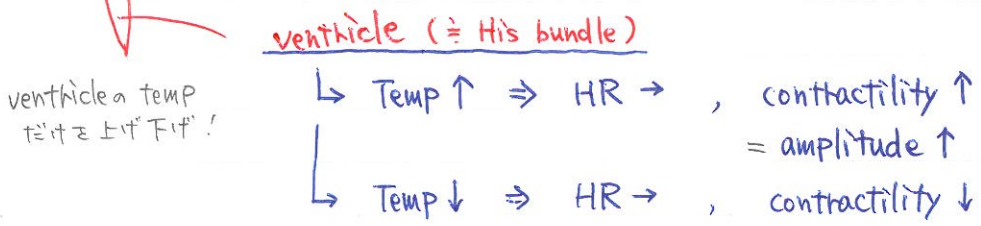 ventricle (≒ His bundle)
ventricleの temp
だけを上げ下げ!
↳ Temp ↑ ⇒ HR → , contractility ↑
= amplitude ↑
↳ Temp ↓ ⇒ HR → , contractility ↓